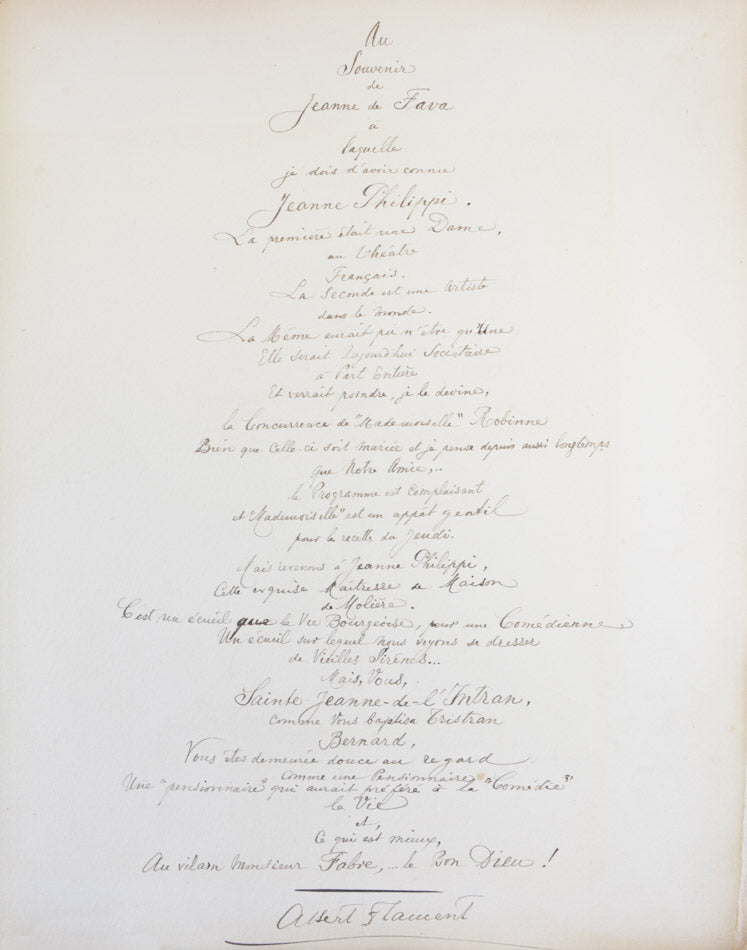 Au
Souvenir
de
Jeanne de Fava
à
laquelle
je dois d'avoir connu
Jeanne Philippi.
La première était une Dame,
au théâtre
Français.
La Seconde est une Artiste
dans le monde.
La Même aurait pu n'être qu'Une
Elle serait Aujourd'hui Sociétaire
à Part Entière
Et verrait poindre, je le devine,
la Concurrence de "Mademoiselle" Robinne
Bien que Celle-ci soit mariée et je pense depuis aussi longtemps
que Notre Amie,..
le Programme est Complaisant
et "Mademoiselle" est un appât gentil
pour la recette du Jeudi.
Mais revenons à Jeanne Philippi,
Cette exquise Maîtresse de Maison
de Molière.
C'est un écueil que la Vie Bourgeoise, pour une Comédienne
Un écueil sur lequel nous voyons se dresser
de Vieilles Sirènes...
Mais, Vous,
Sainte Jeanne-de-l'Intran,
Comme Vous baptisa Tristran
Bernard,
Vous êtes demeurée douce au regard
Comme une Pensionnaire
Une "pensionnaire" qui aurait préféré à la "Comédie"
la Vie
et,
Ce qui est mieux,
Au vilain Monsieur Fabre,... le Bon Dieu !
Albert Flament